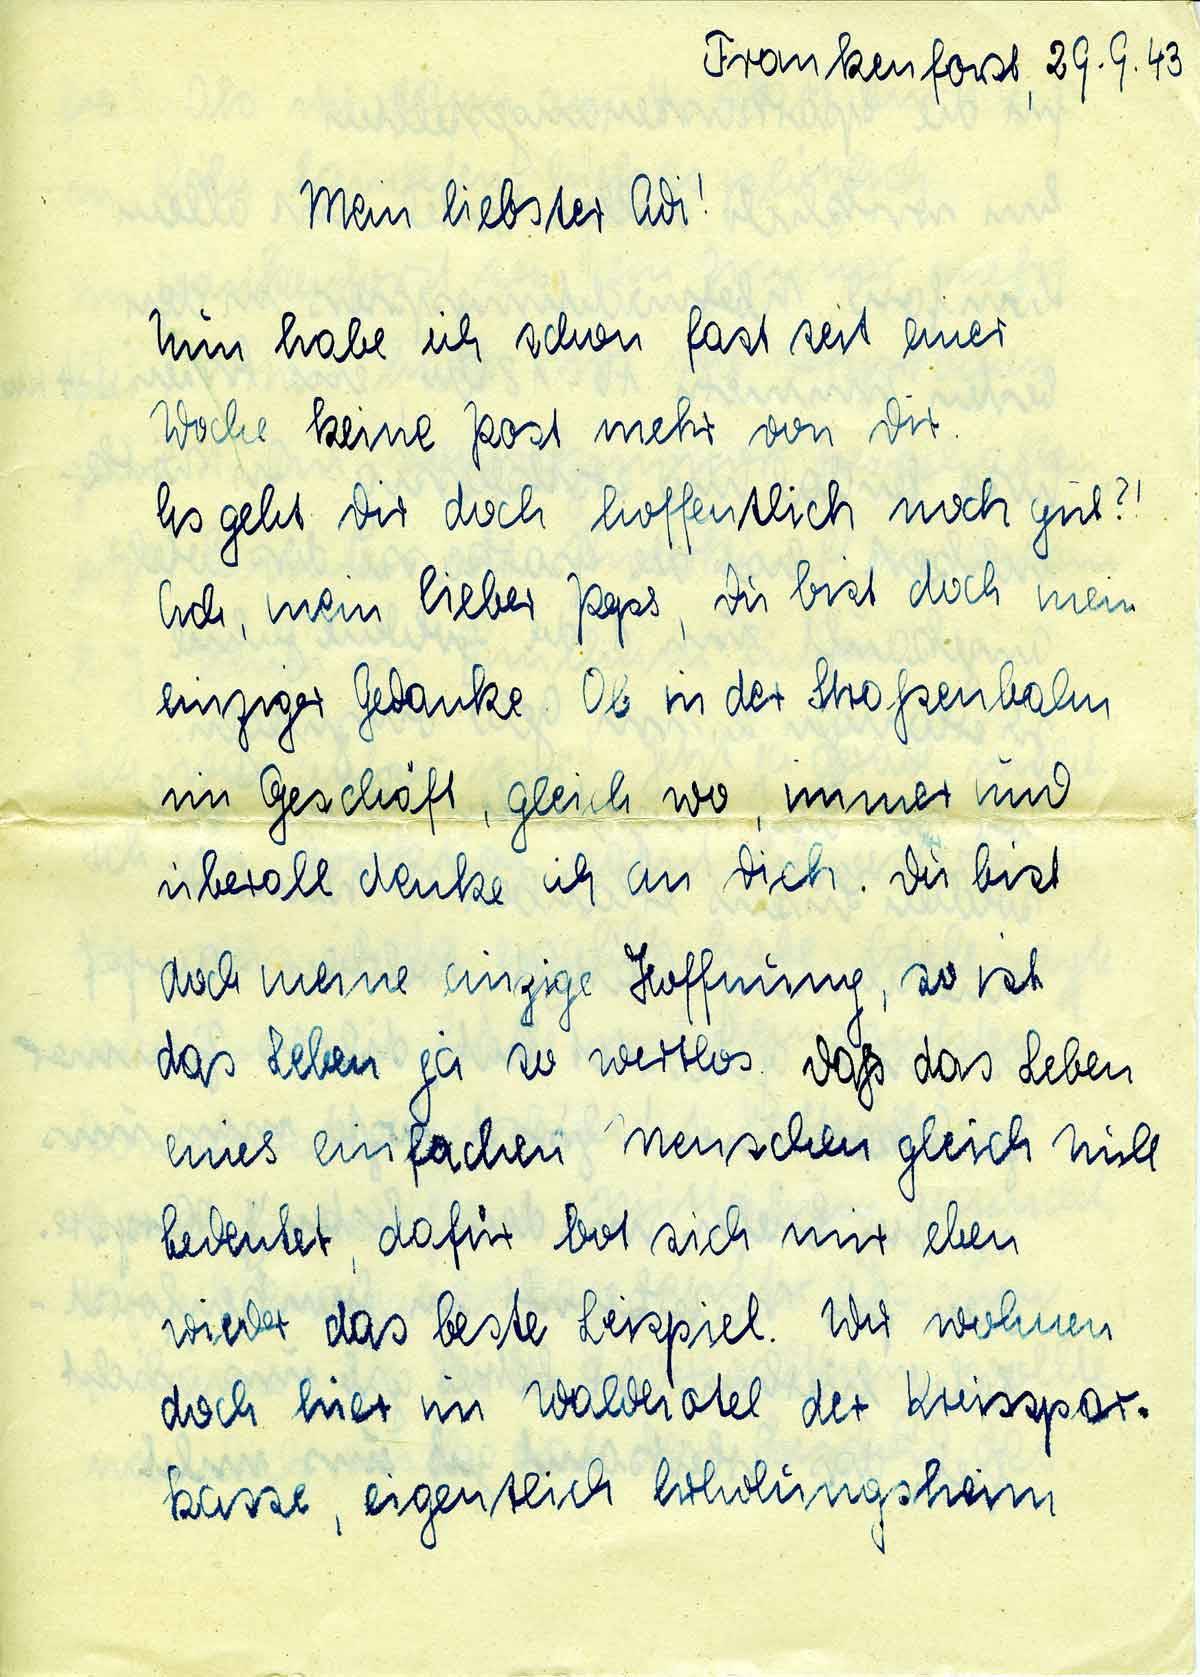 Frankenforst, 29.9.43
Mein liebster Adi!
Nun habe ich schon fast seit einer
Woche keine Post mehr von Dir.
Es geht Dir doch hoffentlich noch gut?!
Ach, mein lieber Paps, Du bist doch mein
einziger Gedanke. Ob in der Straßenbahn
im Geschäft, gleich wo, immer und
überall denke ich an Dich. Du bist
doch meine einzige Hoffnung, so ist
das Leben ja so wertlos. Daß das Leben
eines einfachen Menschen gleich Null
bedeutet, dafür bot sich mir eben
wieder das beste Beispiel. Wir wohnen
doch hier im Waldhotel der Kreisspar-
kasse, eigentlich Erholungsheim